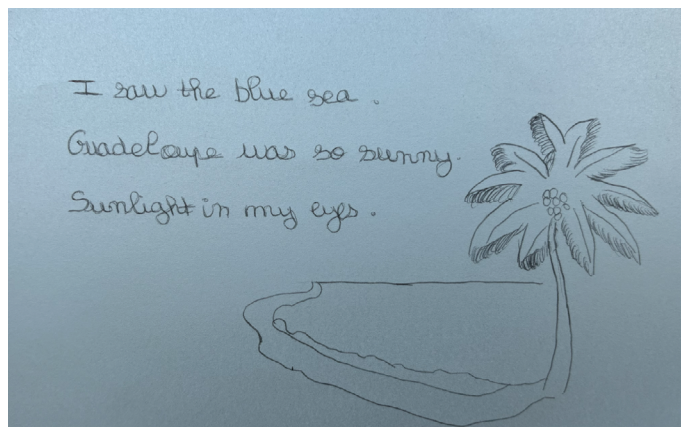 I saw the blue sea.
Guadeloupe was so sunny.
Sunlight in my eyes.